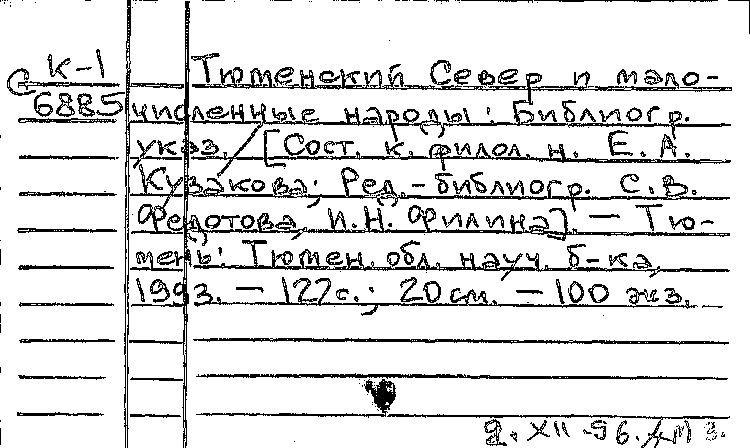 С К-1
6885
Тюменский Север и мало-
численные народы: Библиогр.
указ. [Сост. к. филол. н. Е. А.
Кузакова; Ред.-библиогр. С. В.
Федотова, И. Н. Филина]. — Тю-
мень: Тюмен. обл. науч. б-ка,
1993. — 127 с.; 20 см. — 100 экз.
9. XII - 96.